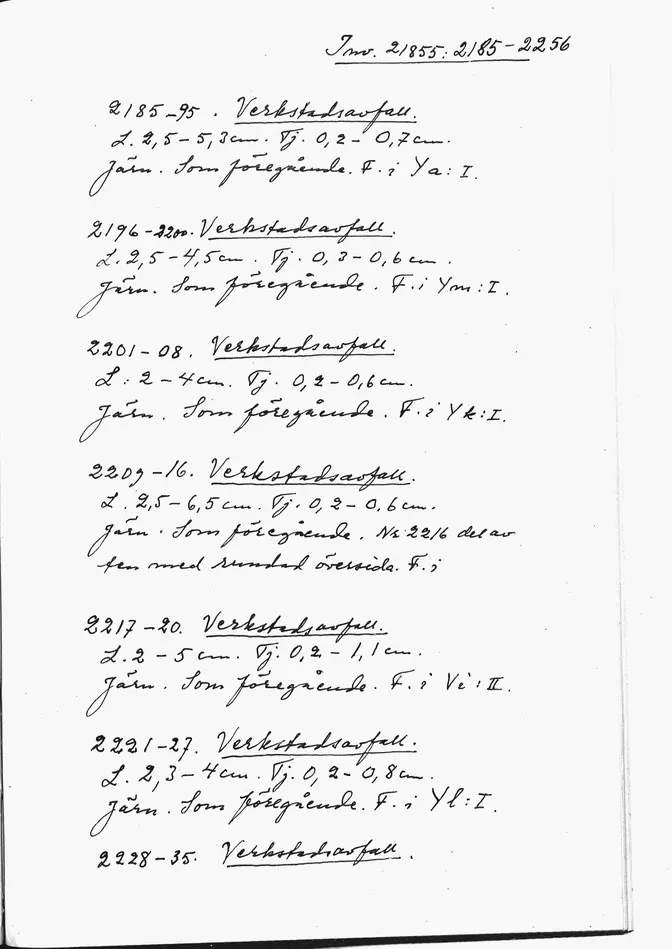 Inv. 21855: 2185-2256
2185-95. Verkstadsavfall.
L. 2,5-5,3cm. Tj. 0,2-0,7cm.
Järn. Som föregående. F. i Ya: I.
2196-2200. Verkstadsavfall.
L. 2,5-4,5cm. Tj. 0,3-0,6cm.
Järn. Som föregående. F. i Ym: I.
2201-08. Verkstadsavfall.
L: 2-4cm. Tj. 0,2-0,6cm.
Järn. Som föregående. F. i Yk: I.
2209-16. Verkstadsavfall.
L. 2,5-6,5cm. Tj. 0,2-0,6cm.
Järn. Som föregående. Nr 2216 del av
ten med rundad översida. F. i
2217-20. Verkstadsavfall.
L. 2-5cm. Tj. 0,2-1,1cm.
Järn. Som föregående. F. i Vi: II.
2221-27. Verkstadsavfall.
L. 2,3-4cm. Tj. 0,2-0,8cm.
Järn. Som föregående. F. i Yl: I.
2228-35. Verkstadsavfall.